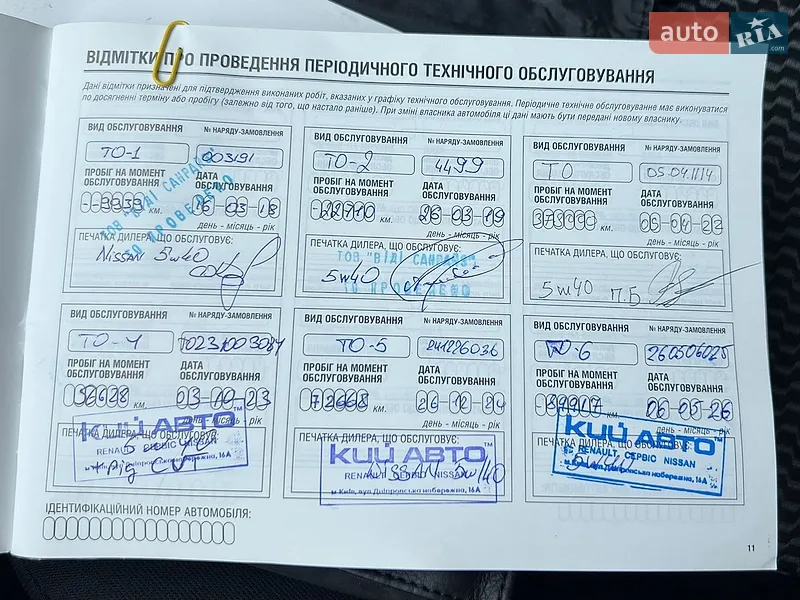 auto RIA .com
ВІДМІТКИ ПРО ПРОВЕДЕННЯ ПЕРІОДИЧНОГО ТЕХНІЧНОГО ОБСЛУГОВУВАННЯ
Дані відмітки призначені для підтвердження виконаних робіт, вказаних у графіку технічного обслуговування. Періодичне технічне обслуговуване має виконуватися
по досягненні терміну або пробігу (залежно від того, що настало раніше). При зміні власника автомобіля ці дані мають бути передані новому власнику.
ВИД ОБСЛУГОВУВАННЯ № НАРЯДУ-ЗАМОВЛЕННЯ
ТО-1 003191
ПРОБІГ НА МОМЕНТ ОБСЛУГОВУВАННЯ ДАТА ОБСЛУГОВУВАННЯ
КМ. 16 03 18
день - місяць - рік
ПЕЧАТКА ДИЛЕРА, ЩО ОБСЛУГОВУЄ:
ТОВ "ВІДІ САНРАЙЗ"
ТО ПРОВЕДЕНО
Nissan 5w40
ВИД ОБСЛУГОВУВАННЯ № НАРЯДУ-ЗАМОВЛЕННЯ
ТО-2 4499
ПРОБІГ НА МОМЕНТ ОБСЛУГОВУВАННЯ ДАТА ОБСЛУГОВУВАННЯ
22710 КМ. 26 03 19
день - місяць - рік
ПЕЧАТКА ДИЛЕРА, ЩО ОБСЛУГОВУЄ:
ТОВ "ВІДІ САНРАЙЗ"
5w40
ТО ПРОВЕДЕНО
ВИД ОБСЛУГОВУВАННЯ № НАРЯДУ-ЗАМОВЛЕННЯ
ТО
ПРОБІГ НА МОМЕНТ ОБСЛУГОВУВАННЯ ДАТА ОБСЛУГОВУВАННЯ
КМ.
день - місяць - рік
ПЕЧАТКА ДИЛЕРА, ЩО ОБСЛУГОВУЄ:
5w40 П.Б
ВИД ОБСЛУГОВУВАННЯ № НАРЯДУ-ЗАМОВЛЕННЯ
ТО-4
ПРОБІГ НА МОМЕНТ ОБСЛУГОВУВАННЯ ДАТА ОБСЛУГОВУВАННЯ
52628 КМ. 03 10 23
день - місяць - рік
ПЕЧАТКА ДИЛЕРА, ЩО ОБСЛУГОВУЄ:
КИЙ АВТО™
RENAULT СЕРВІС NISSAN
м.Київ, вул.Дніпровська набережна, 16А
ВИД ОБСЛУГОВУВАННЯ № НАРЯДУ-ЗАМОВЛЕННЯ
ТО-5 241226036
ПРОБІГ НА МОМЕНТ ОБСЛУГОВУВАННЯ ДАТА ОБСЛУГОВУВАННЯ
72668 КМ. 26 12 24
день - місяць - рік
ПЕЧАТКА ДИЛЕРА, ЩО ОБСЛУГОВУЄ:
КИЙ АВТО™
RENAULT СЕРВІС NISSAN
м.Київ, вул.Дніпровська набережна, 16А
ВИД ОБСЛУГОВУВАННЯ № НАРЯДУ-ЗАМОВЛЕННЯ
ТО-6 260506025
ПРОБІГ НА МОМЕНТ ОБСЛУГОВУВАННЯ ДАТА ОБСЛУГОВУВАННЯ
КМ. 06 05 26
день - місяць - рік
ПЕЧАТКА ДИЛЕРА, ЩО ОБСЛУГОВУЄ:
КИЙ АВТО™
RENAULT СЕРВІС NISSAN
м.Київ, вул.Дніпровська набережна, 16А
ІДЕНТИФІКАЦІЙНИЙ НОМЕР АВТОМОБІЛЯ:
11